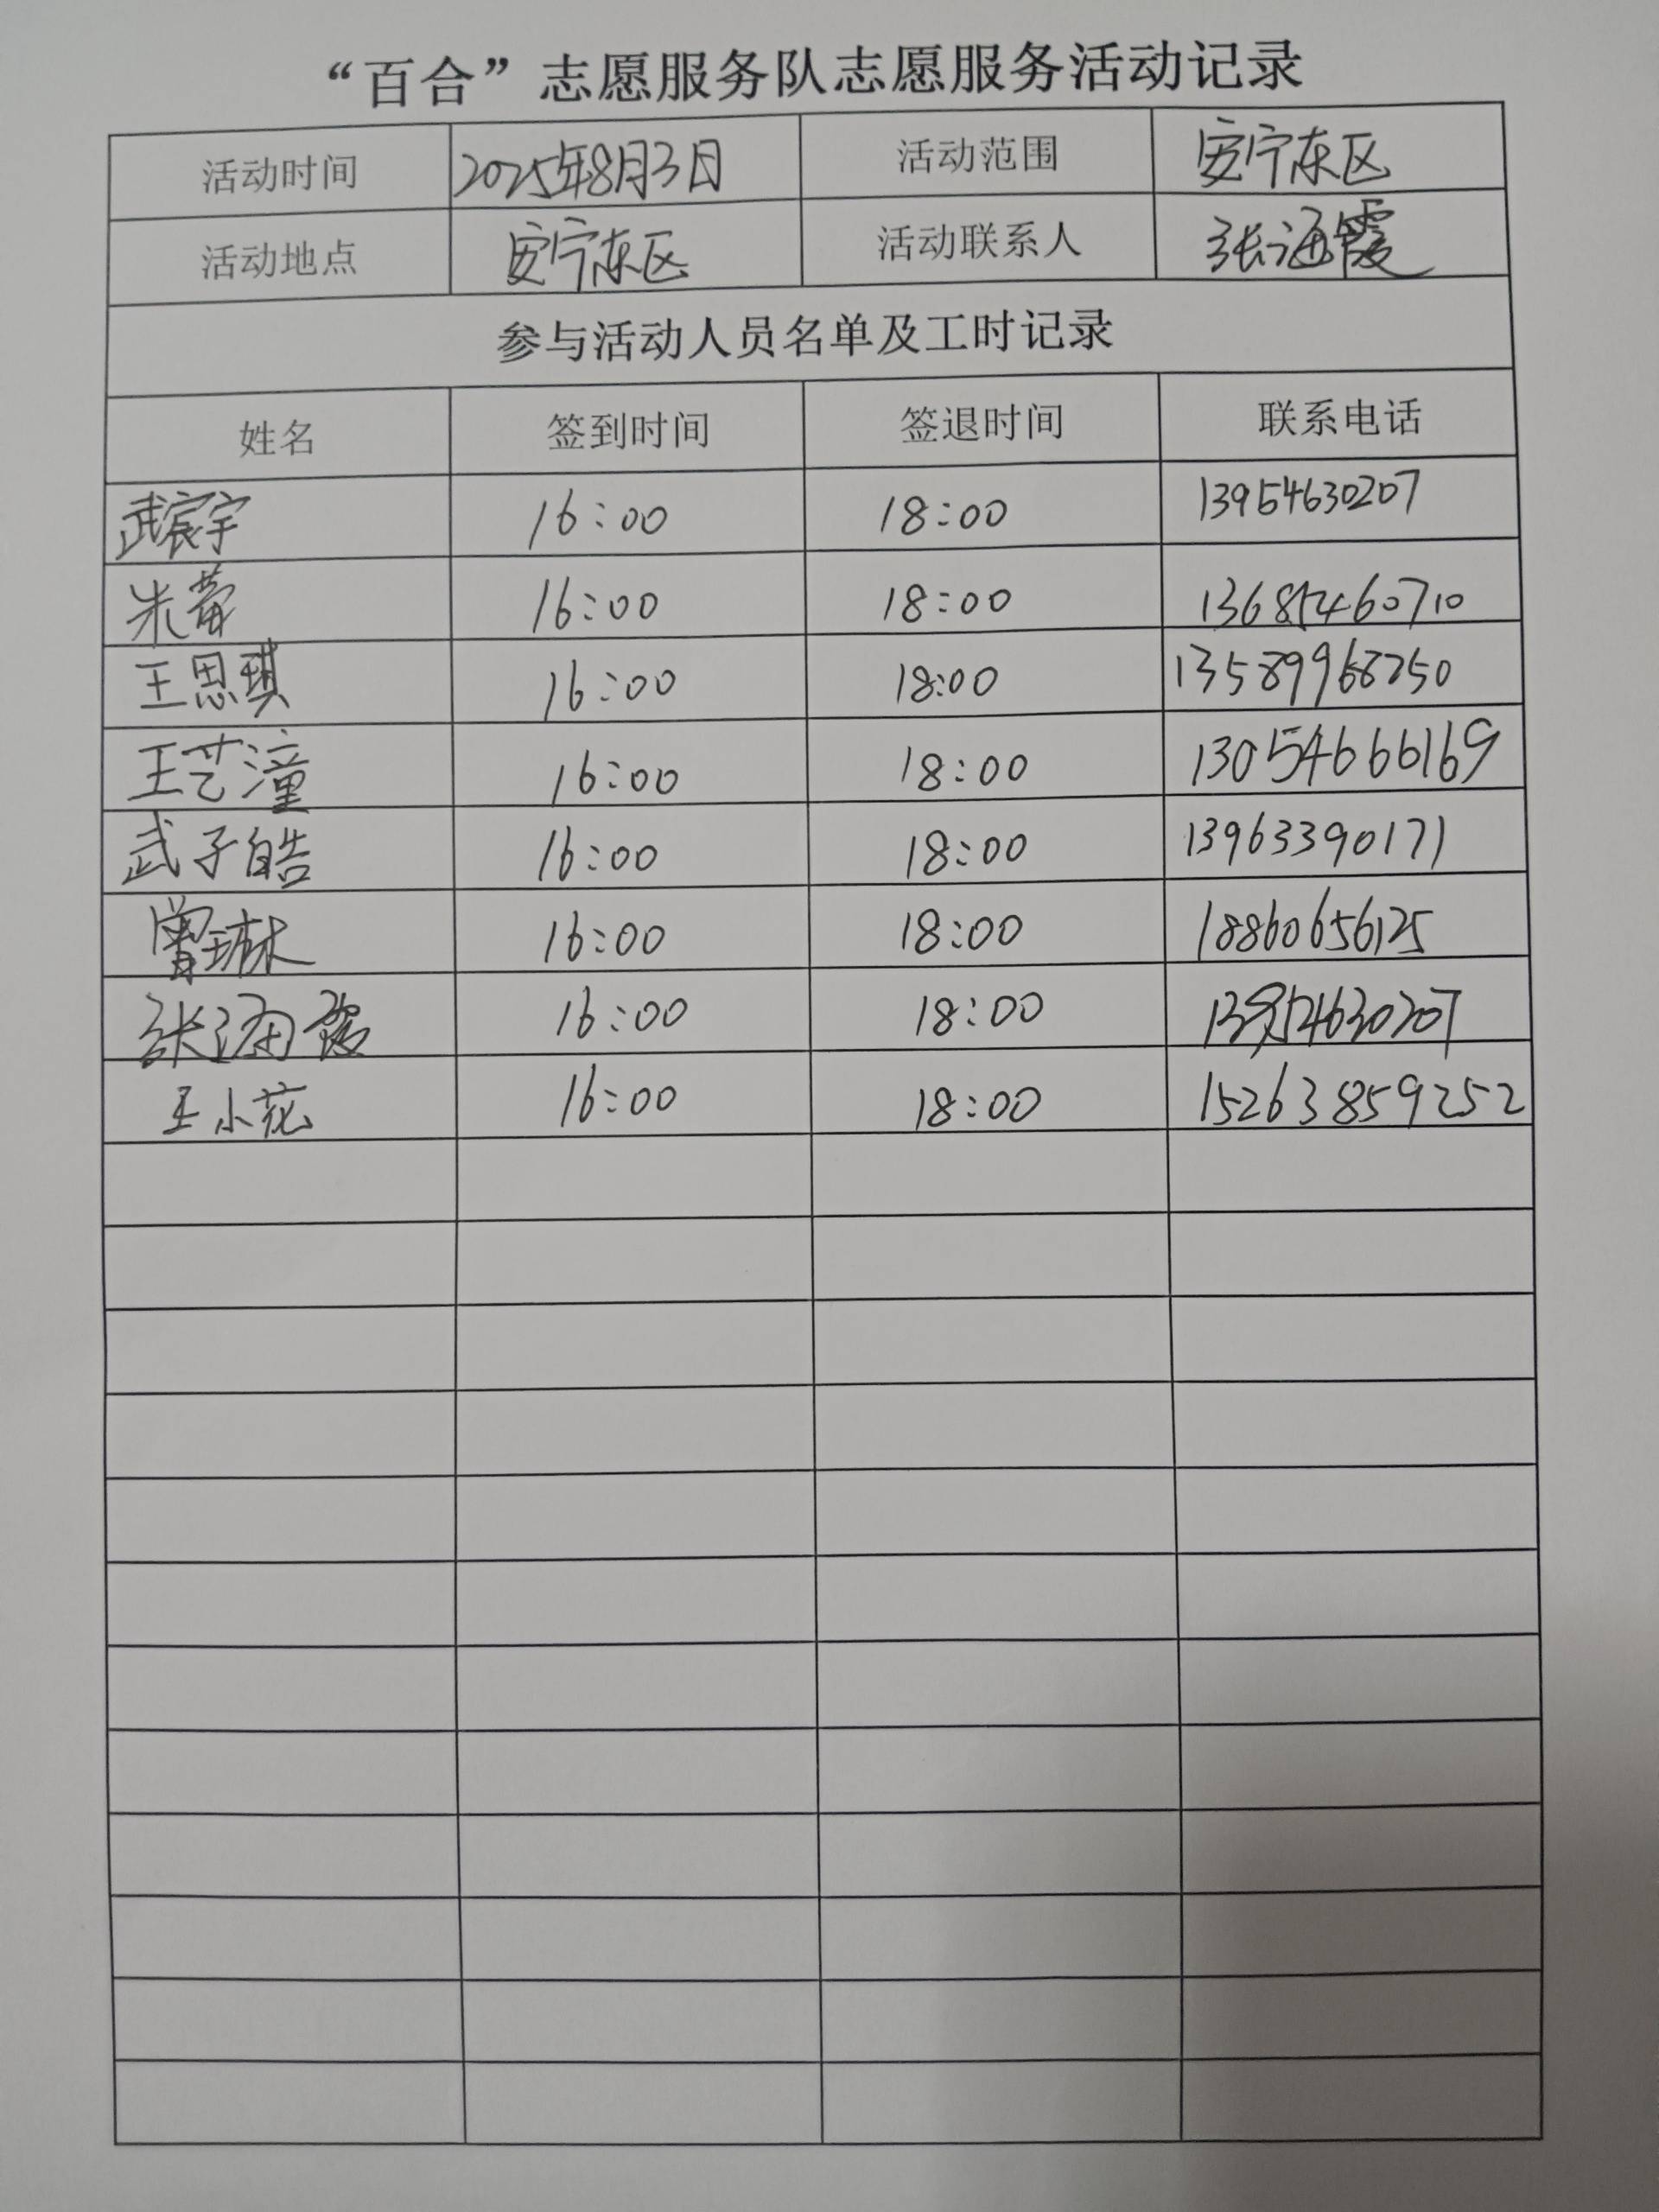 “百合”志愿服务队志愿服务活动记录
活动时间 2025年8月3日 活动范围 安宁东区
活动地点 安宁东区 活动联系人 张海霞
参与活动人员名单及工时记录
姓名 签到时间 签退时间 联系电话
武宸宇 16:00 18:00 13954630207
朱蕾 16:00 18:00 13685460710
王思琪 16:00 18:00 13589968250
王艺潼 16:00 18:00 13054666169
武子皓 16:00 18:00 13963390171
曾琳 16:00 18:00 18860656125
张海霞 16:00 18:00 13954630207
王小花 16:00 18:00 15263859252